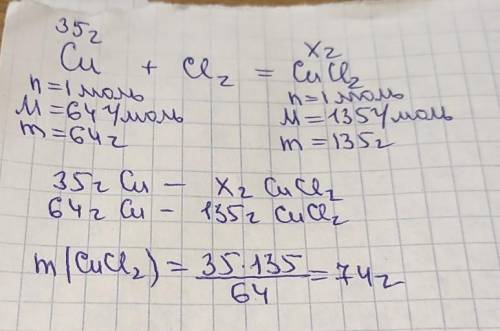 35г xг
Cu + Cl₂ = CuCl₂
n=1моль n=1моль
M=64г/моль M=135г/моль
m=64г m=135г
35г Cu – xг CuCl₂
64г Cu – 135г CuCl₂
m(CuCl₂) = 35·135/64 = 74г